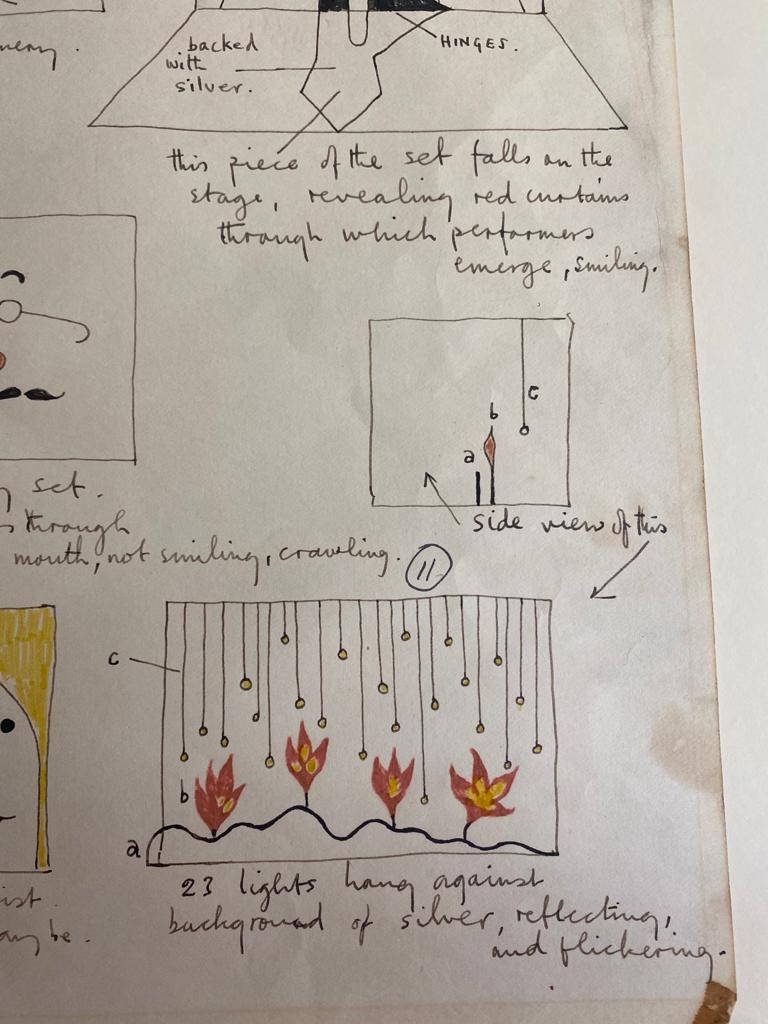 backed
with
silver.
HINGES.
this piece of the set falls on the
stage, revealing red curtains
through which performers
emerge, smiling.
c
b
a
set.
through
side view of this
mouth, not smiling, crawling.
11
c
b
a
23 lights hang against
background of silver, reflecting,
and flickering.
be.